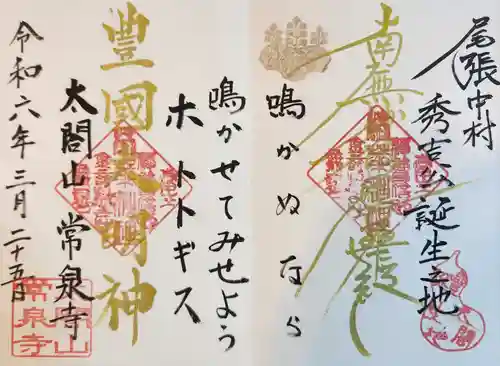 尾張中村
秀吉公誕生之地
南無妙法蓮華経
鳴かぬなら
鳴かせてみせよう
ホトトギス
豊國大明神
太閤山 常泉寺
令和六年三月二十五日